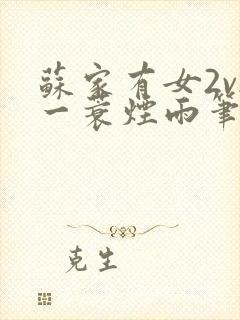 蘇家有女2v
一蓑煙雨筆
克生